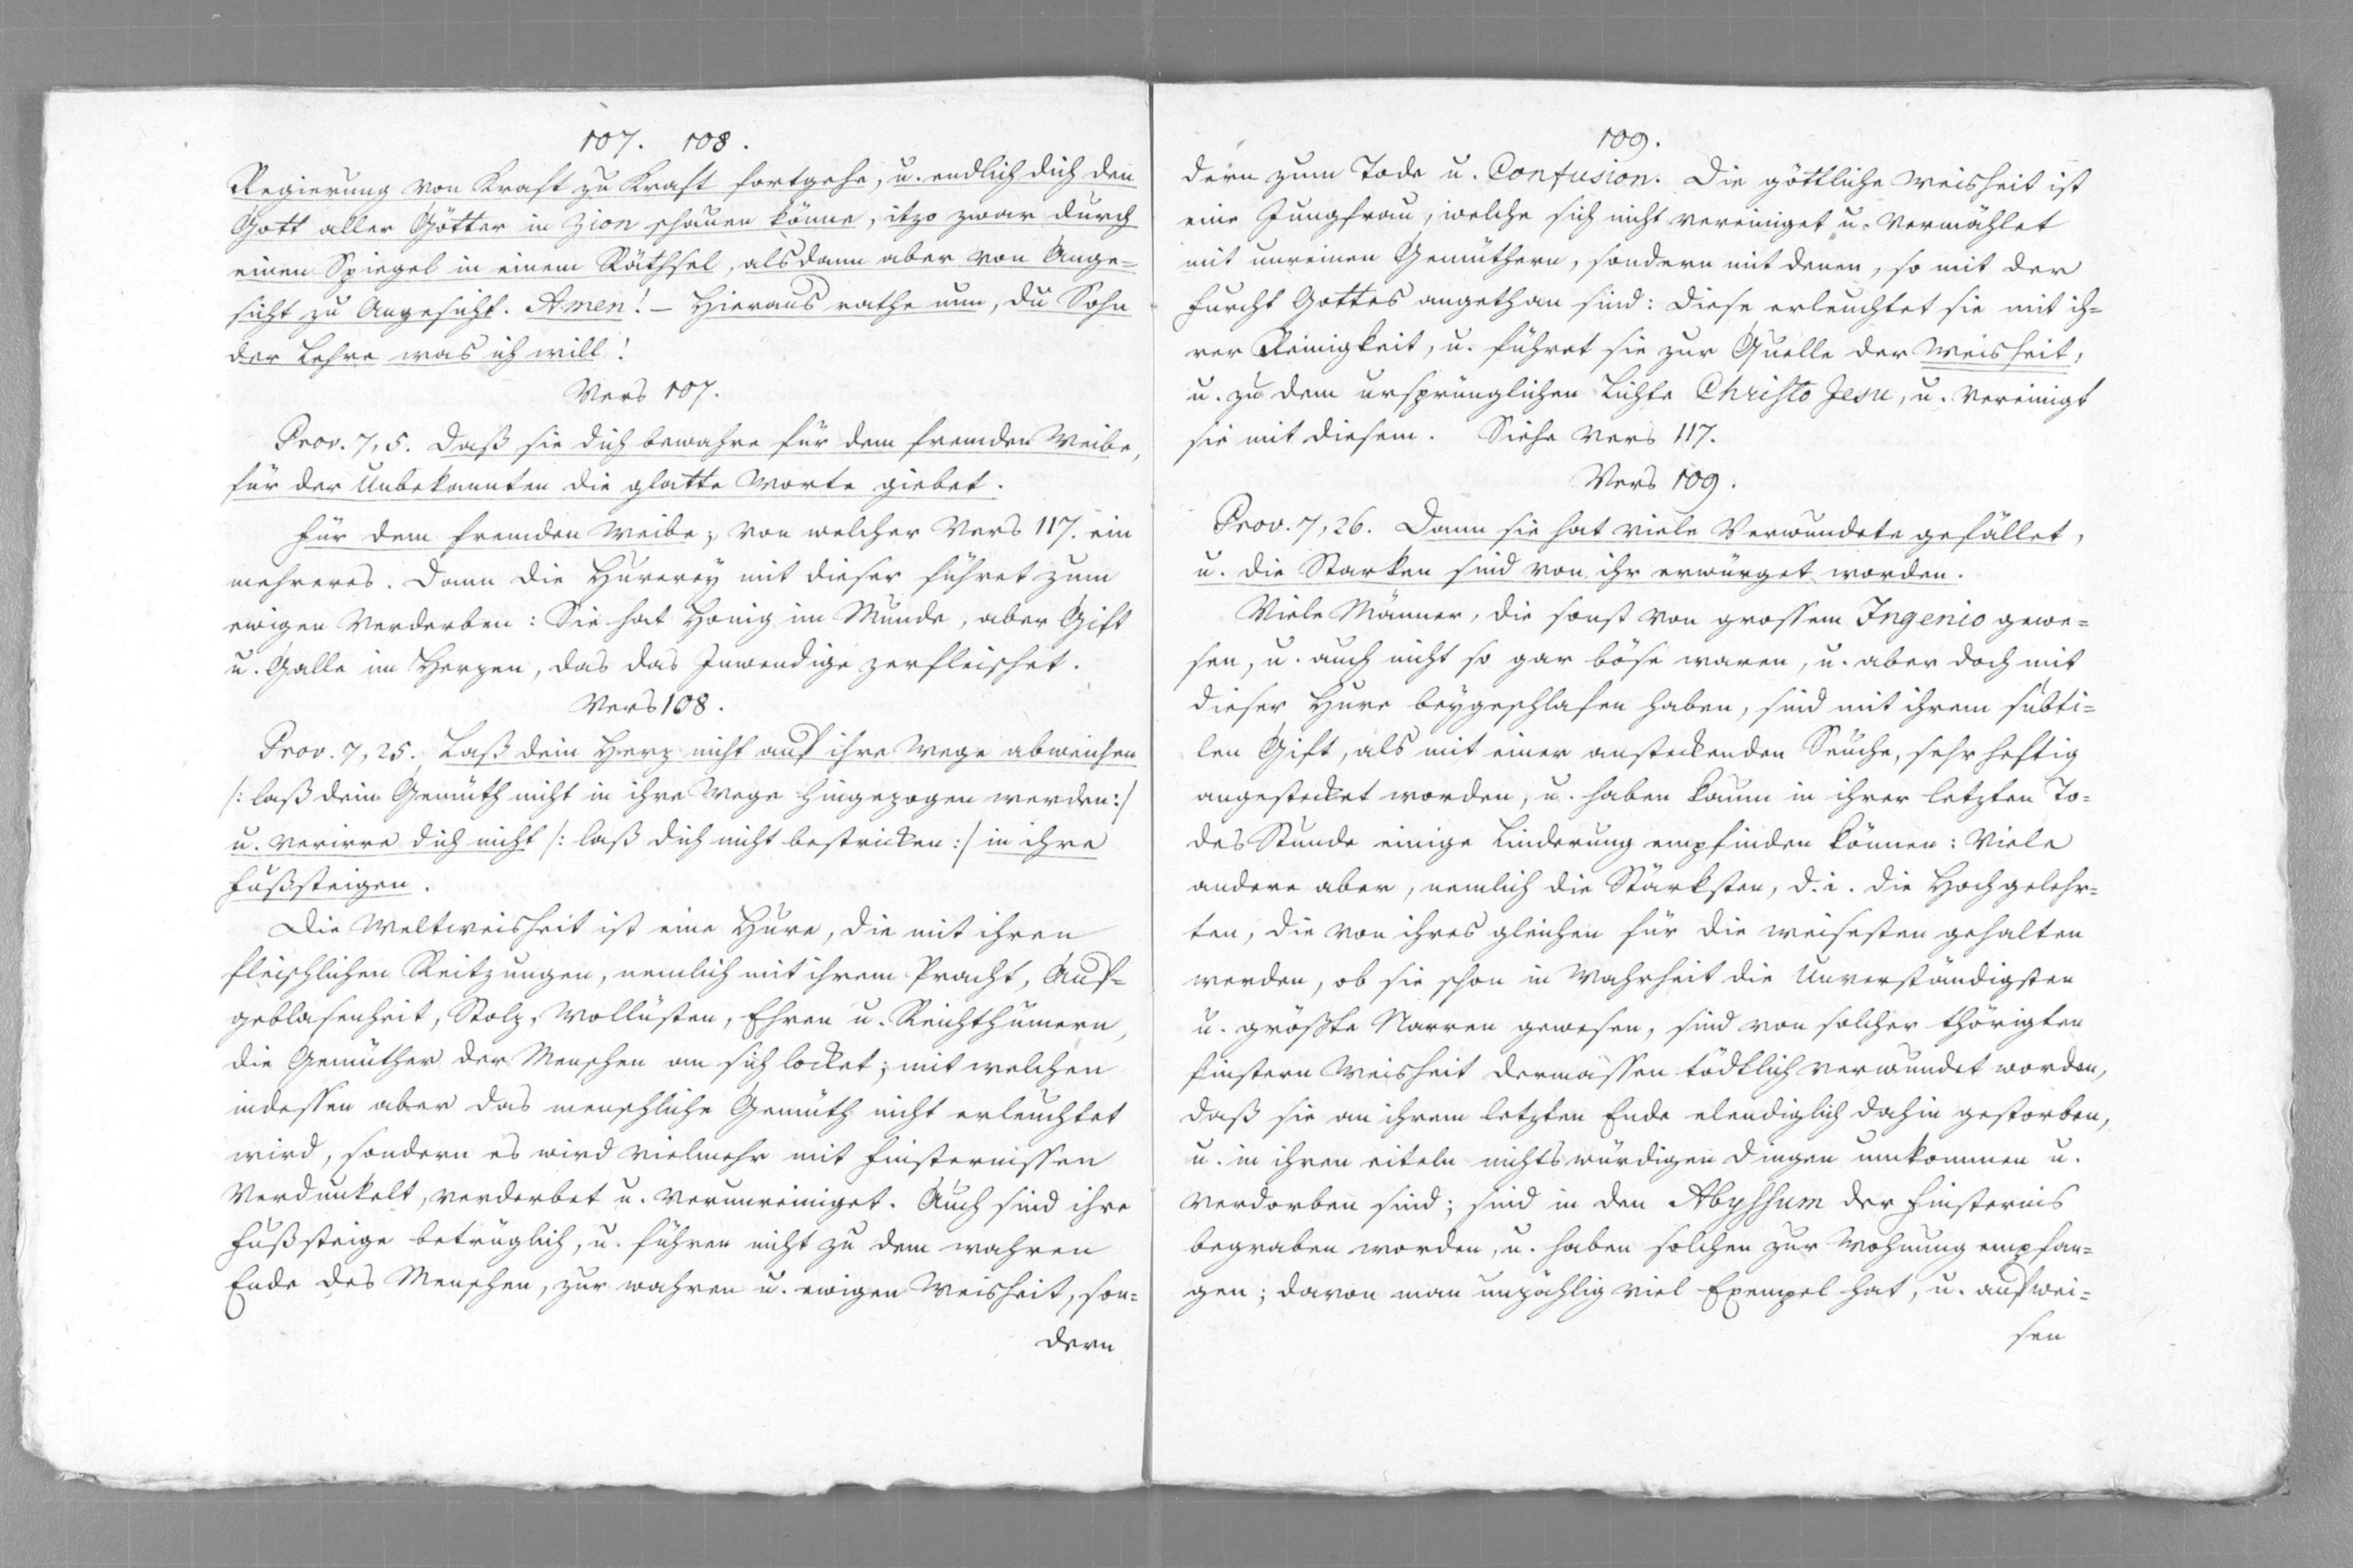 107. 108.
Regierung von Kraft zu Kraft fortgehe, u. endlich dich den
Gott aller Götter in Zion schauen könne, itzo zwar durch
einen Spiegel in einem Räthsel, alsdann aber von Ange=
sicht zu Angesicht. Amen! – Hieraus rathe nun, du Sohn
der Lehre was ich will!
Vers 107.
Prov. 7, 5. Daß sie dich bewahre für dem fremden Weibe,
für der Unbekannten die glatte Worte giebet.
Für dem fremden Weibe; von welcher Vers 117. ein
mehreres. Dann die Hurerey mit dieser führet zum
ewigen Verderben: Sie hat Honig im Munde, aber Gift
u. Galle im Herzen, das das Inwendige zerfleischet.
Vers 108.
Prov. 7, 25. Laß dein Herz nicht auf ihre Wege abweichen
/: laß dein Gemüth nicht in ihre Wege hingezogen werden:/
u. verirre dich nicht /: laß dich nicht bestricken :/ in ihre
Fußsteigen.
Die Weltweisheit ist eine Hure, die mit ihren
fleischlichen Reitzungen, nemlich mit ihrem Pracht, Auf=
geblasenheit, Stolz, Wollüsten, Ehren u. Reichthümern,
die Gemüther der Menschen an sich locket; mit welchen
indessen aber das menschliche Gemüth nicht erleuchtet
wird, sondern es wird vielmehr mit Finsternissen
verdunkelt, verderbet u. verunreiniget. Auch sind ihre
Fußsteige betrüglich, u. führen nicht zu dem wahren
Ende des Menschen, zur wahren u. ewigen Weisheit, son=
dern
109.
dern zum Tode u. Confusion. Die göttliche Weisheit ist
eine Jungfrau, welche sich nicht vereiniget u. vermählet
mit unreinen Gemüthern, sondern mit denen, so mit der
Furcht Gottes angethan sind: Diese erleuchtet sie mit ih=
rer Reinigkeit, u. führet sie zur Quelle der Weisheit,
u. zu dem ursprünglichen Lichte Christo Jesu, u. vereinigt
sie mit diesem. Siehe Vers 117.
Vers 109.
Prov. 7, 26. Dann sie hat viele Verwundete gefället,
u. die Starken sind von ihr erwürget worden.
Viele Männer, die sonst von grossem Ingenio gewe=
sen, u. auch nicht so gar böse waren, u. aber doch mit
dieser Hure beygeschlafen haben, sind mit ihrem subti=
len Gift, als mit einer ansteckenden Seuche, sehr heftig
angestecket worden, u. haben kaum in ihrer letzten To=
des Stunde einige Linderung empfinden können: Viele
andere aber, nemlich die Stärksten, d. i. die Hochgelehr=
ten, die von ihres gleichen für die weisesten gehalten
werden, ob sie schon in Wahrheit die Unverständigsten
u. größte Narren gewesen, sind von solcher thörigten
finstern Weisheit dermassen tödtlich verwundet worden,
daß sie an ihrem letzten Ende elendiglich dahin gestorben,
u. in ihren eiteln nichtswürdigen Dingen umkommen u.
verdorben sind; sind in den Abyssum der Finsternis
begraben worden, u. haben solchen zur Wohnung empfan=
gen; davon man unzählig viel Exempel hat, u. aufwei=
sen